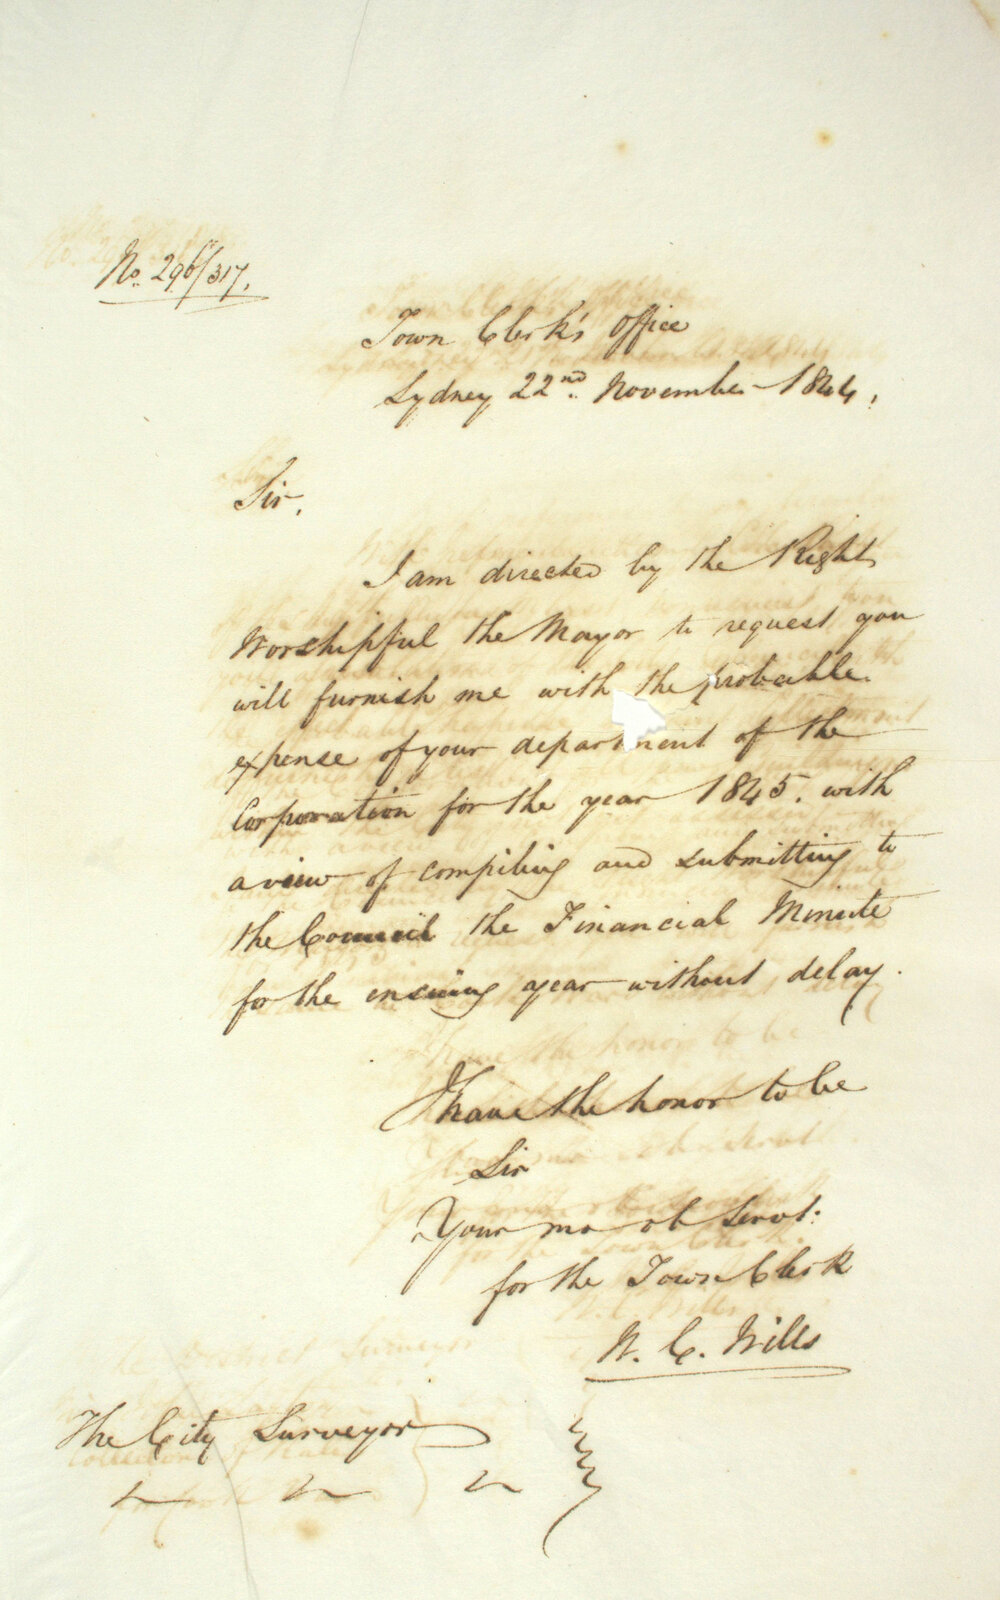 No. 296/317.
Town Clerk's Office
Sydney 22nd. November 1844.
Sir,
I am directed by the Right
Worshipful the Mayor to request you
will furnish me with the probable
expense of your department of the
Corporation for the year 1845. with
a view of compiling and submitting to
the Council the Financial Minute
for the ensuing year without delay.
I have the honor to be
Sir
Your mo ob Servt.
for the Town Clerk
W. C. Wills
The City Surveyor